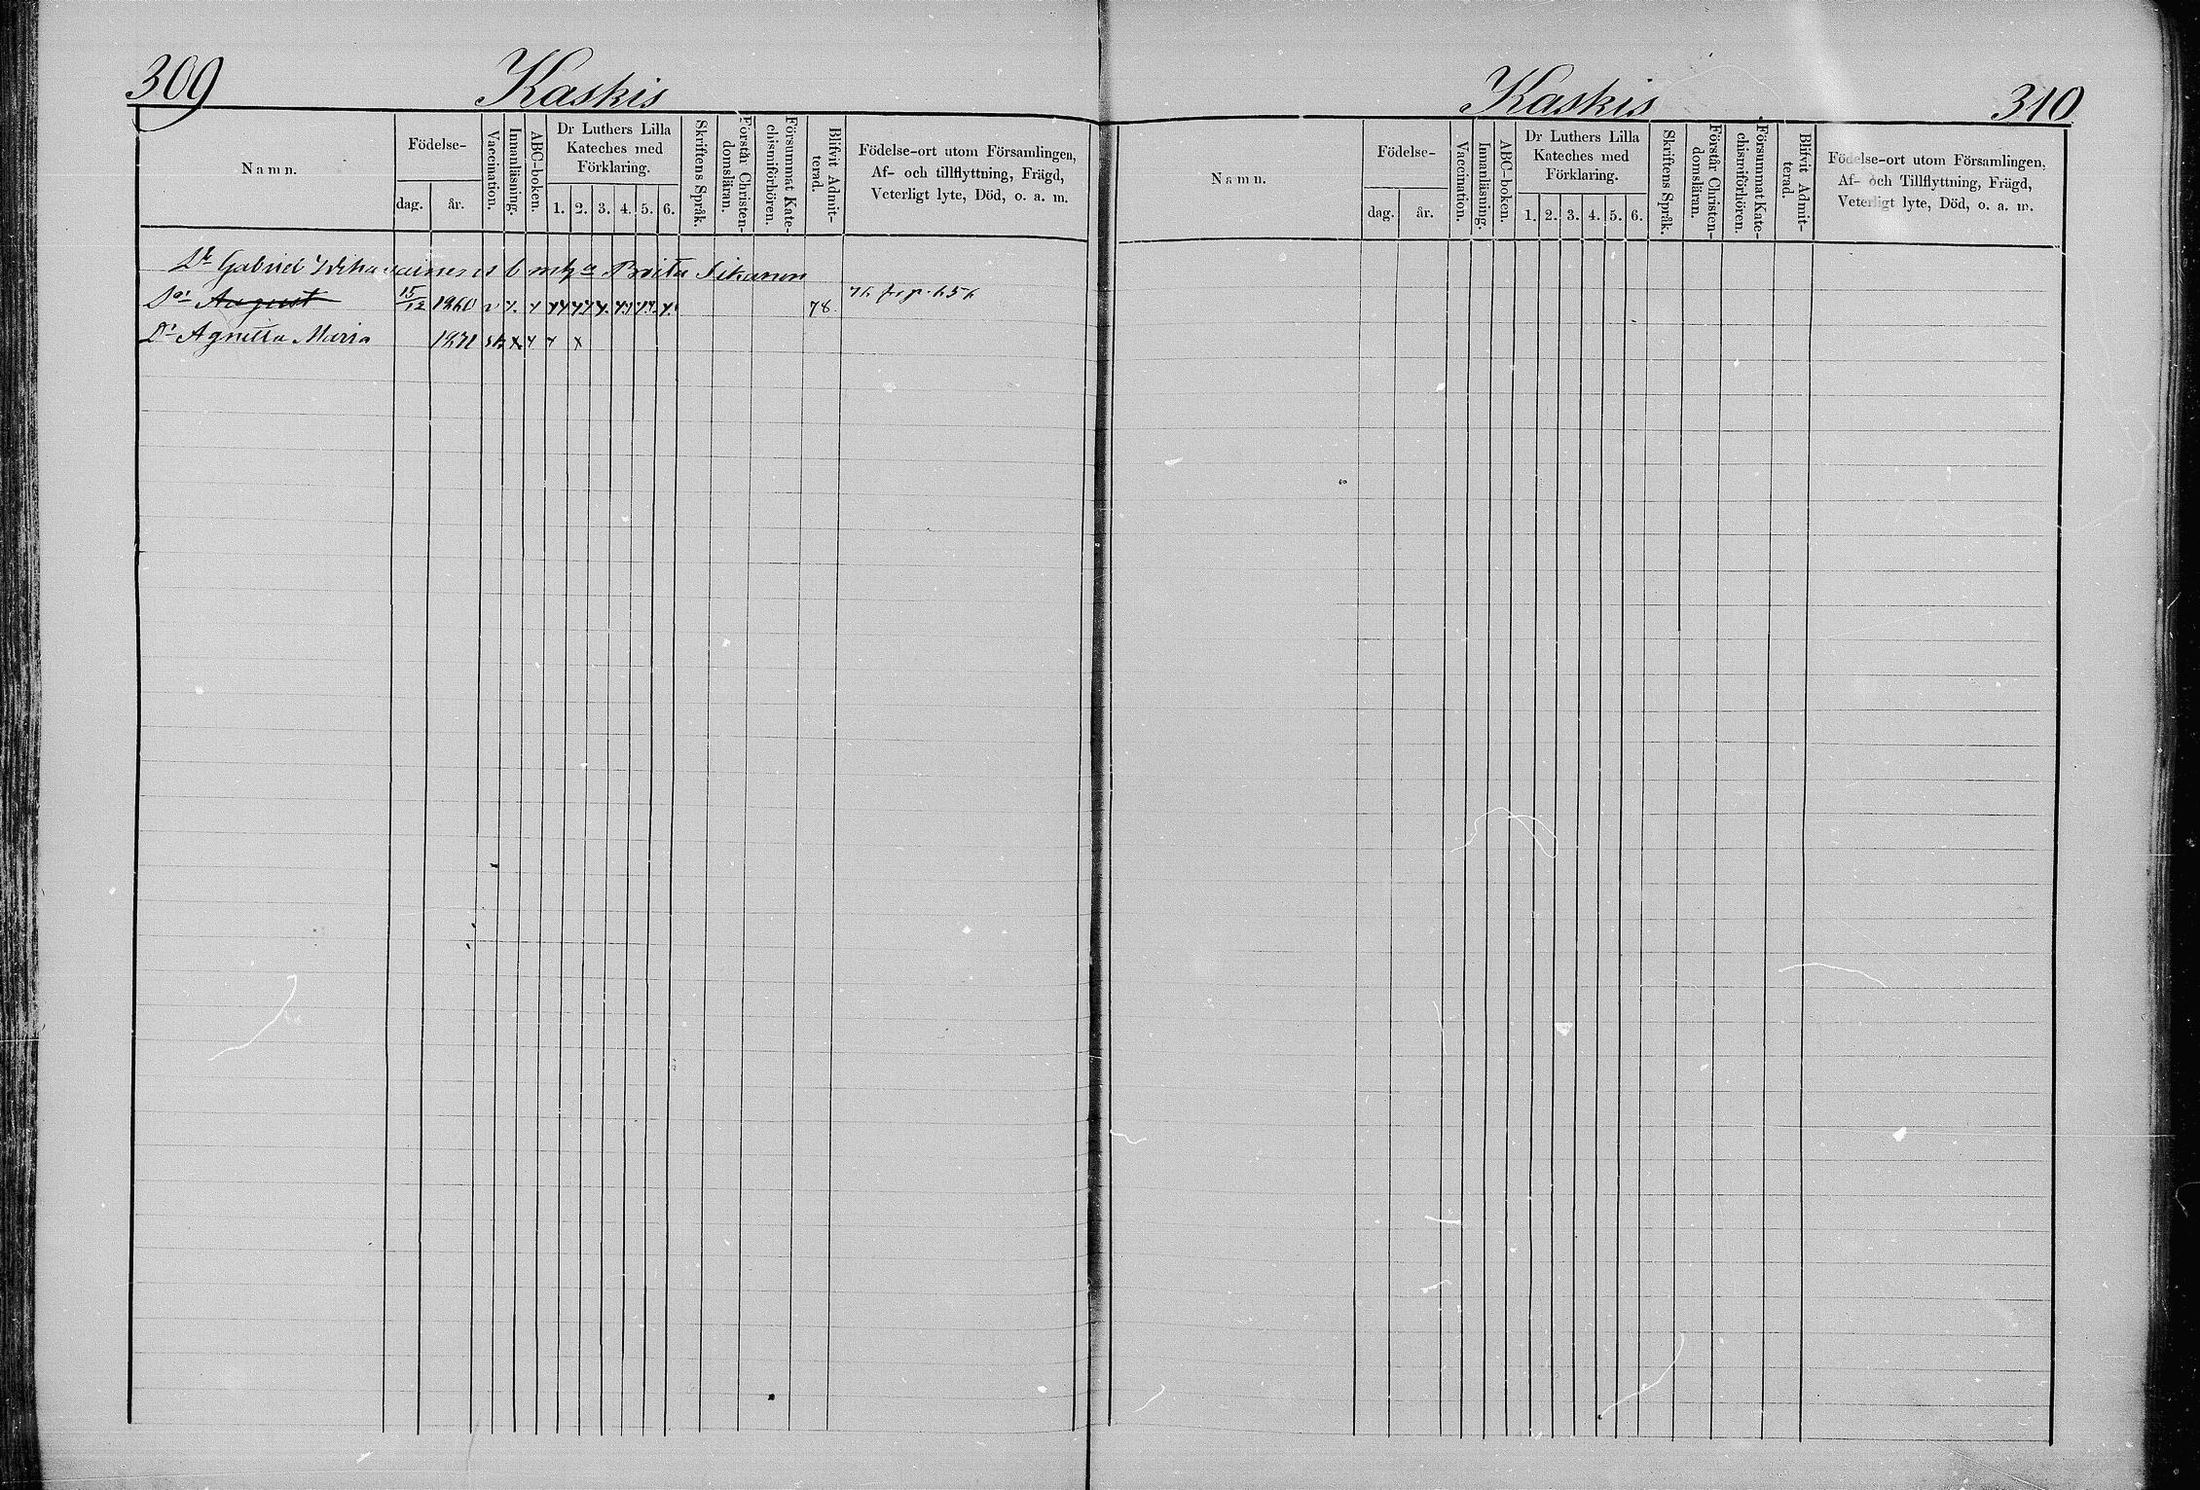 309 Kaskis
Namn. Födelse- dag. år. Vaccination. Innanläsning. ABC-boken. Dr Luthers Lilla Kateches med Förklaring. 1. 2. 3. 4. 5. 6. Skriftens Språk. Förstår Christendomsläran. Försummat Katechismiförhören. Blifvit Admitterad. Födelse-ort utom Församlingen, Af- och tillflyttning, Frägd, Veterligt lyte, Död, o. a. m.
Gabriel Brita
August 15/12 1860 v x. x 78.
Dr Agnetta Maria 1871 x x x x
Kaskis 310
Namn. Födelse- dag. år. Vaccination. Innanläsning. ABC-boken. Dr Luthers Lilla Kateches med Förklaring. 1. 2. 3. 4. 5. 6. Skriftens Språk. Förstår Christendomsläran. Försummat Katechismiförhören. Blifvit Admitterad. Födelse-ort utom Församlingen, Af- och Tillflyttning, Frägd, Veterligt lyte, Död, o. a. m.